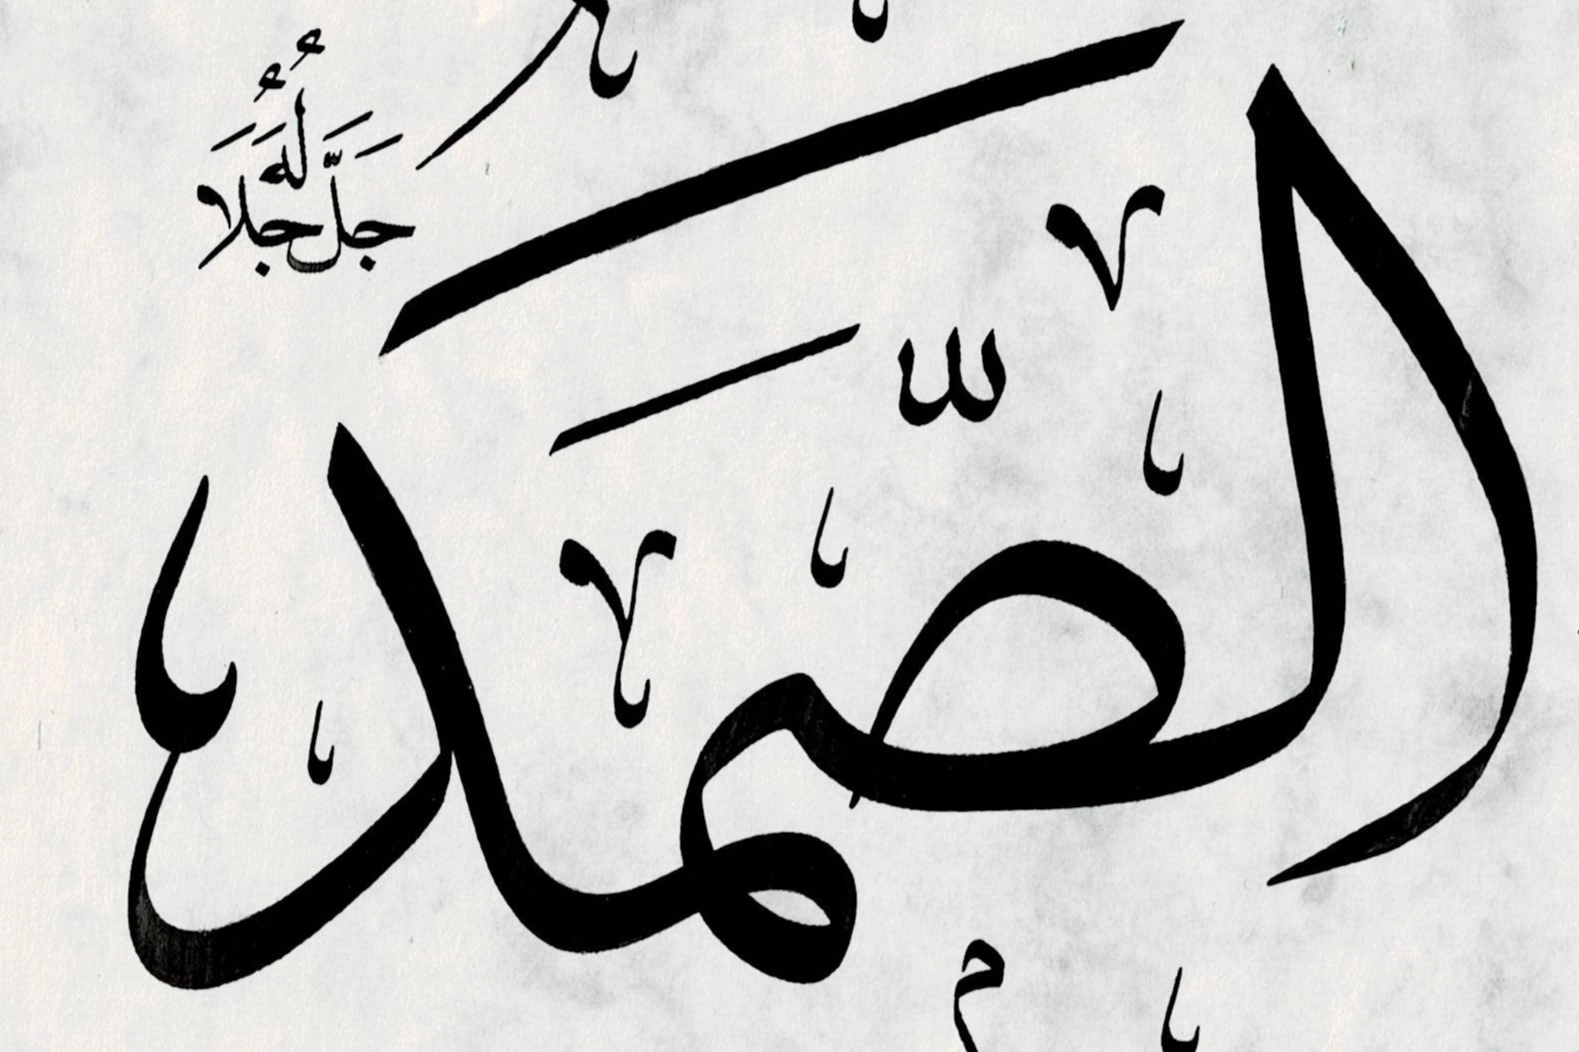 الصَّمَد
جَلَّ جَلَالُهُ